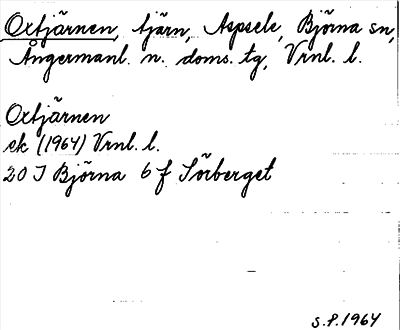 Oxtjärnen, tjärn, Aspsele, Björna sn,
Ångermanl. n. doms. tg, Vrnl. l.
Oxtjärnen
ek (1964) Vrnl. l.
20 I Björna 6 f Sörberget
S.P. 1964